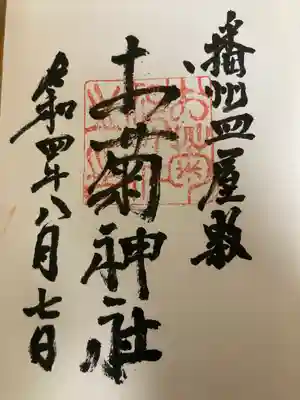 播州皿屋敷
お菊神社
令和四年八月七日